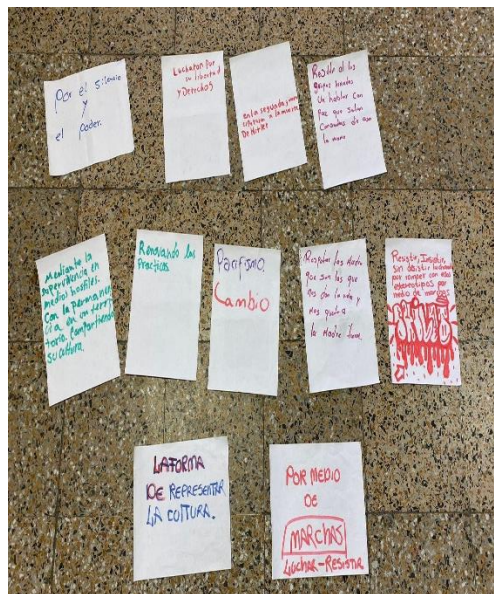 Por el silencio
y
el poder.
Lucharon por
su libertad
y Derechos
en la segunda guerra
a la minoria
De Hitler
Resistir al los
grupos Armados
Un hablar Con
Paz que salan
Mediante la
supervivencia en
medios hostiles.
Con la permanen
cia en un terri
torio. Compartiendo
su cultura.
Renovando las
Practicas.
Pacifismo.
Cambio
Respetar las Madre
que son las que
nos dan la vida y
nos quita
la Madre tierra.
Resistir, Insistir,
Sin desistir luchando
por romper con esos
estereotipos por
medio de
LA FORMA
DE REPRESENTAR
LA CULTURA.
POR MEDIO
DE
MARCHAS
LUCHAR-RESISTIR